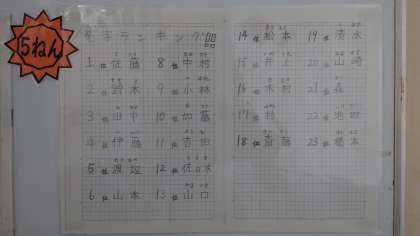 5ねん
名字ランキング
1位 佐藤
2位 鈴木
3位 田中
4位 伊藤
5位 渡辺
6位 山本
8位 中村
9位 小林
10位 加藤
11位 吉田
12位 佐々木
13位 山口
14位 松本
15位 井上
16位 木村
17位 林
18位 斎藤
19位 清水
20位 山崎
21位 森
22位 池田
23位 橋本